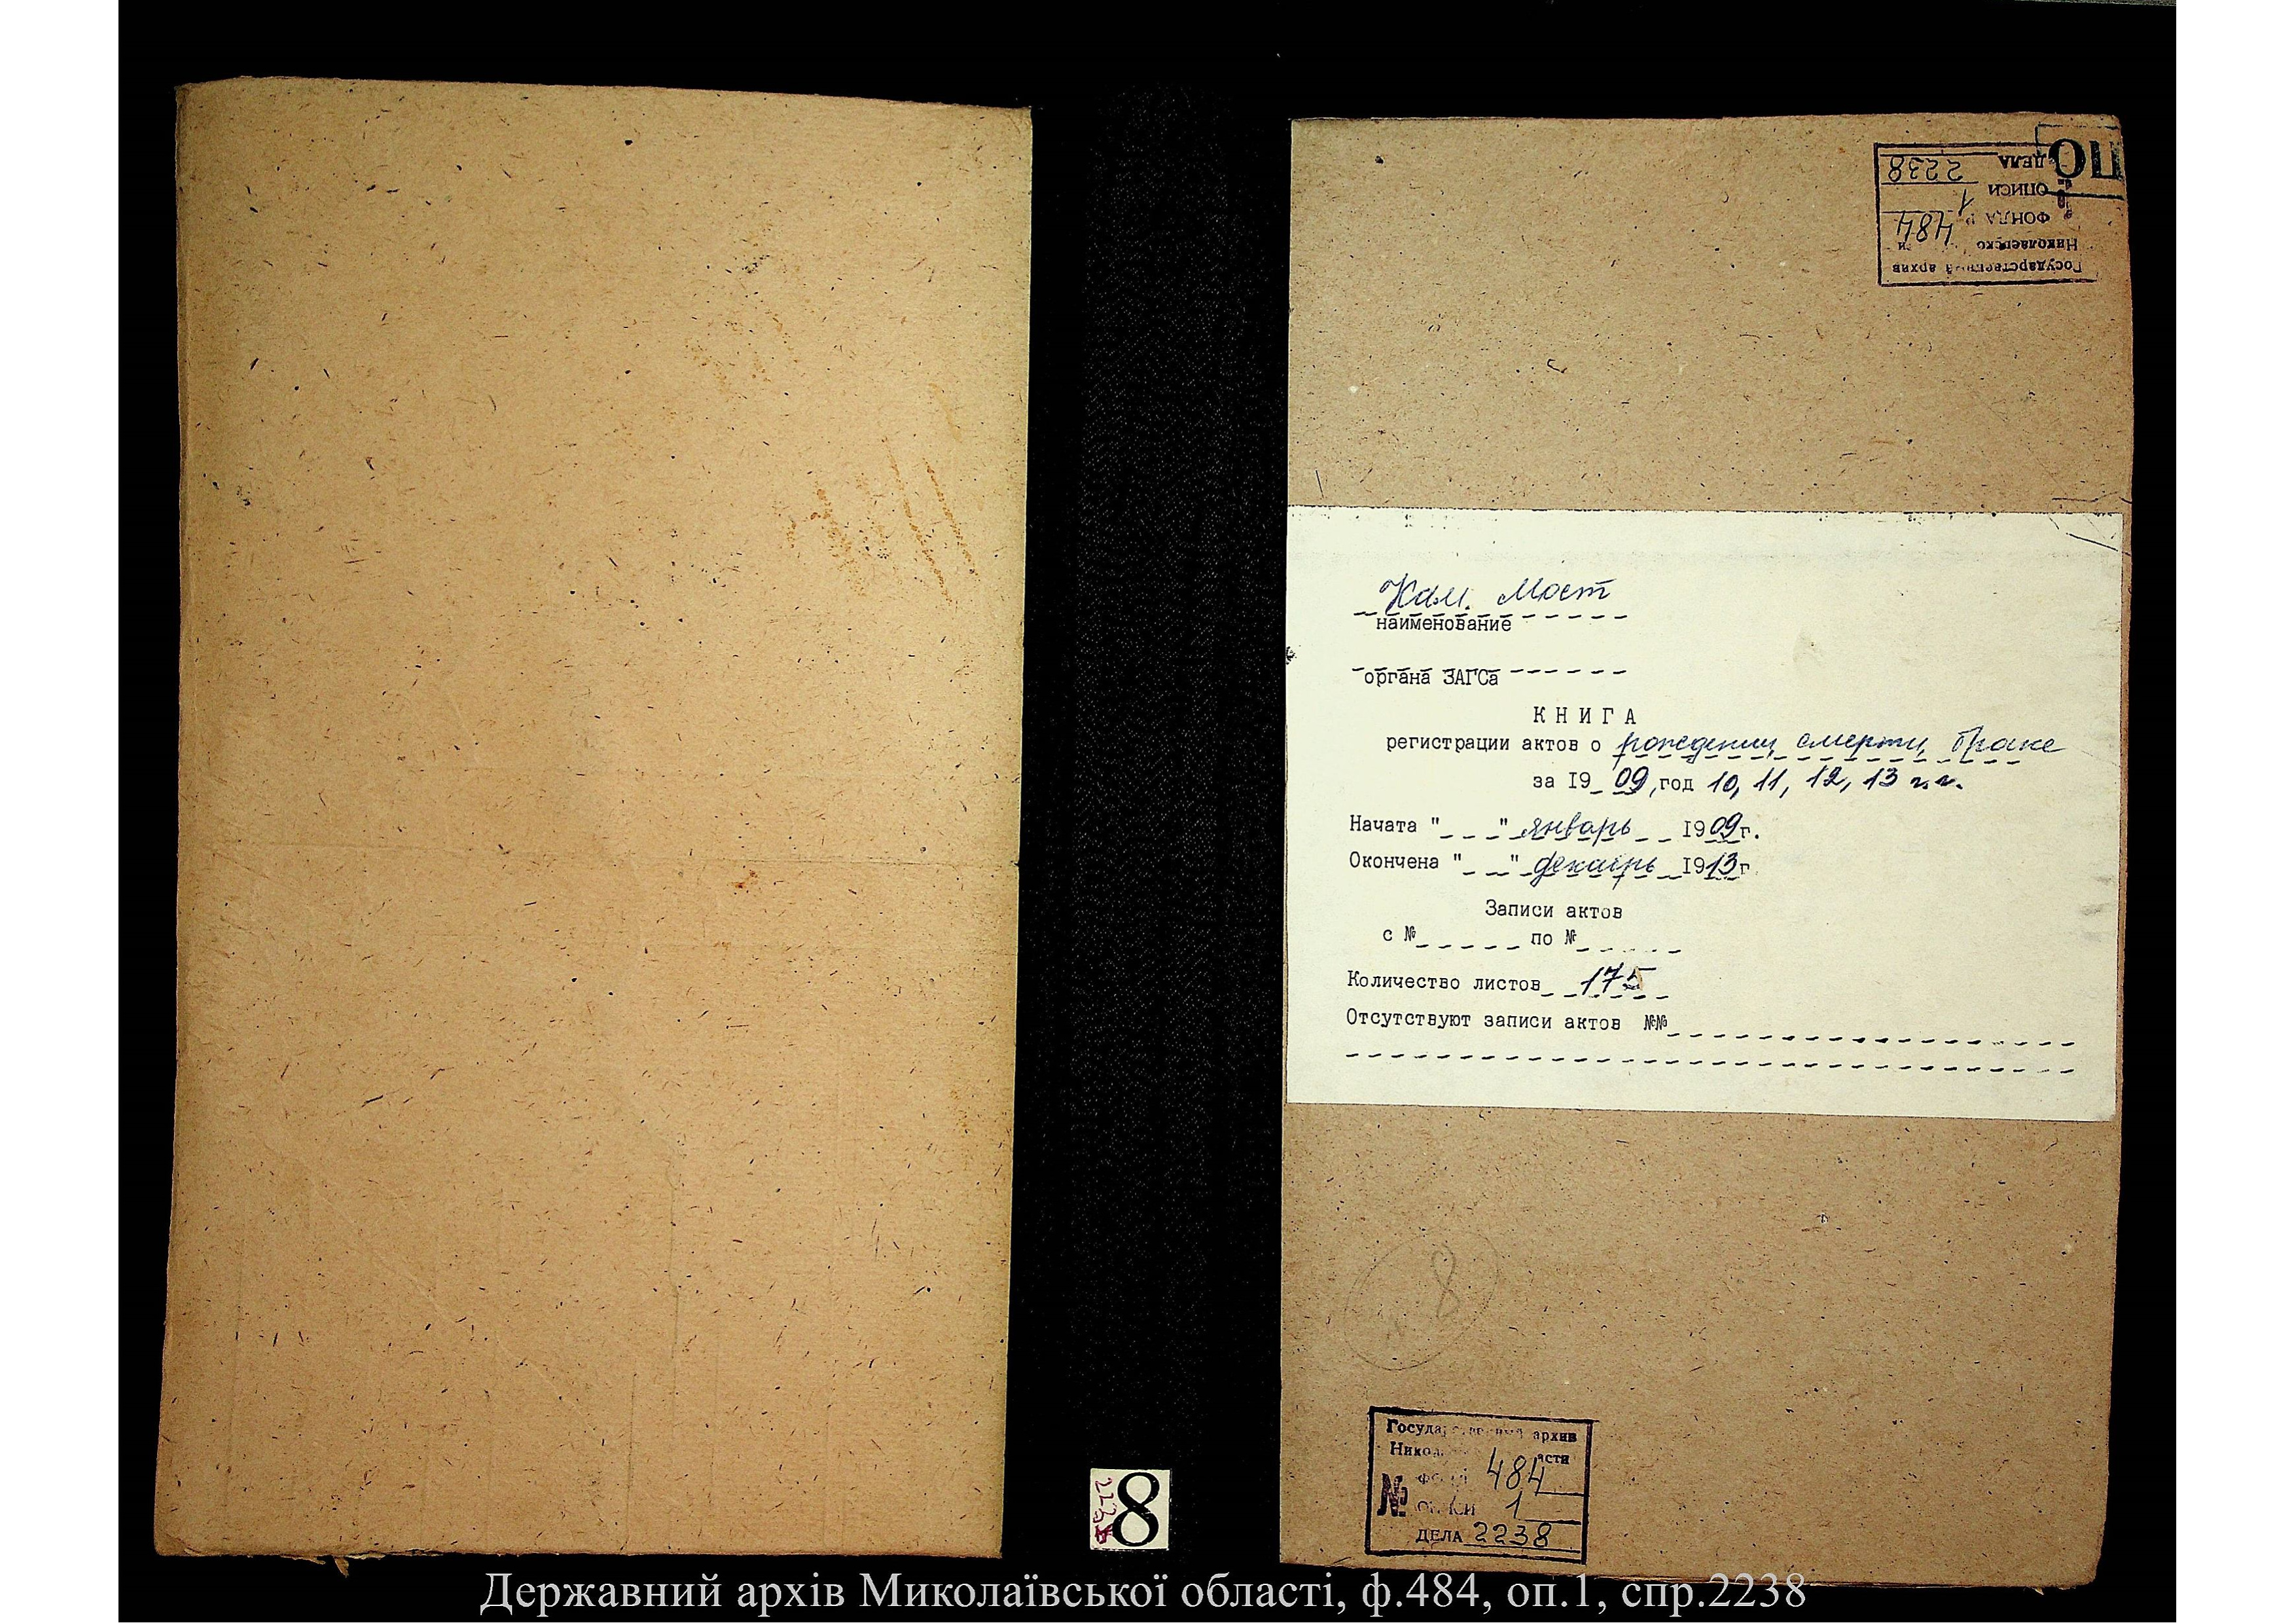 ПО
ДЕЛА 2238
ОПИСИ 1
ФОНДА Р 484
Николаевско
Государственный архив
Кам. Мост
наименование
органа ЗАГСа
КНИГА
регистрации актов о рождении, смерти, браке
за 1909, год 10, 11, 12, 13 г.г.
Начата " " январь 1909г.
Окончена " " декабрь 1913г
Записи актов
с № по №
Количество листов 175
Отсутствуют записи актов №№
8
Государственный архив
484
№ ОПИСИ 1
ДЕЛА 2238
2238
8
Державний архів Миколаївської області, ф.484, оп.1, спр.2238